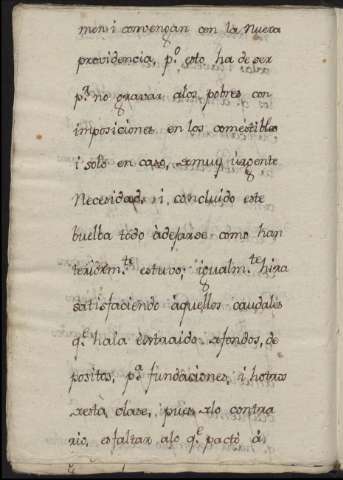 men i convengan con la nueva
providencia, p.º esto ha de ser
p.ª no gravar alos pobres con
imposiciones en los comestibles
i solo en caso, demuy urgente
Necesidad, i, concluido este
buelba todo adejarse como han
teriorm.te estuvo; igualm.te hira
satisfaciendo aquellos caudales
q.e haia extraido. afondos, de
positos, p.ª fundaciones, i, hotras
desta clase, pues alo contra
rio, esfaltar alo q.e pactó á